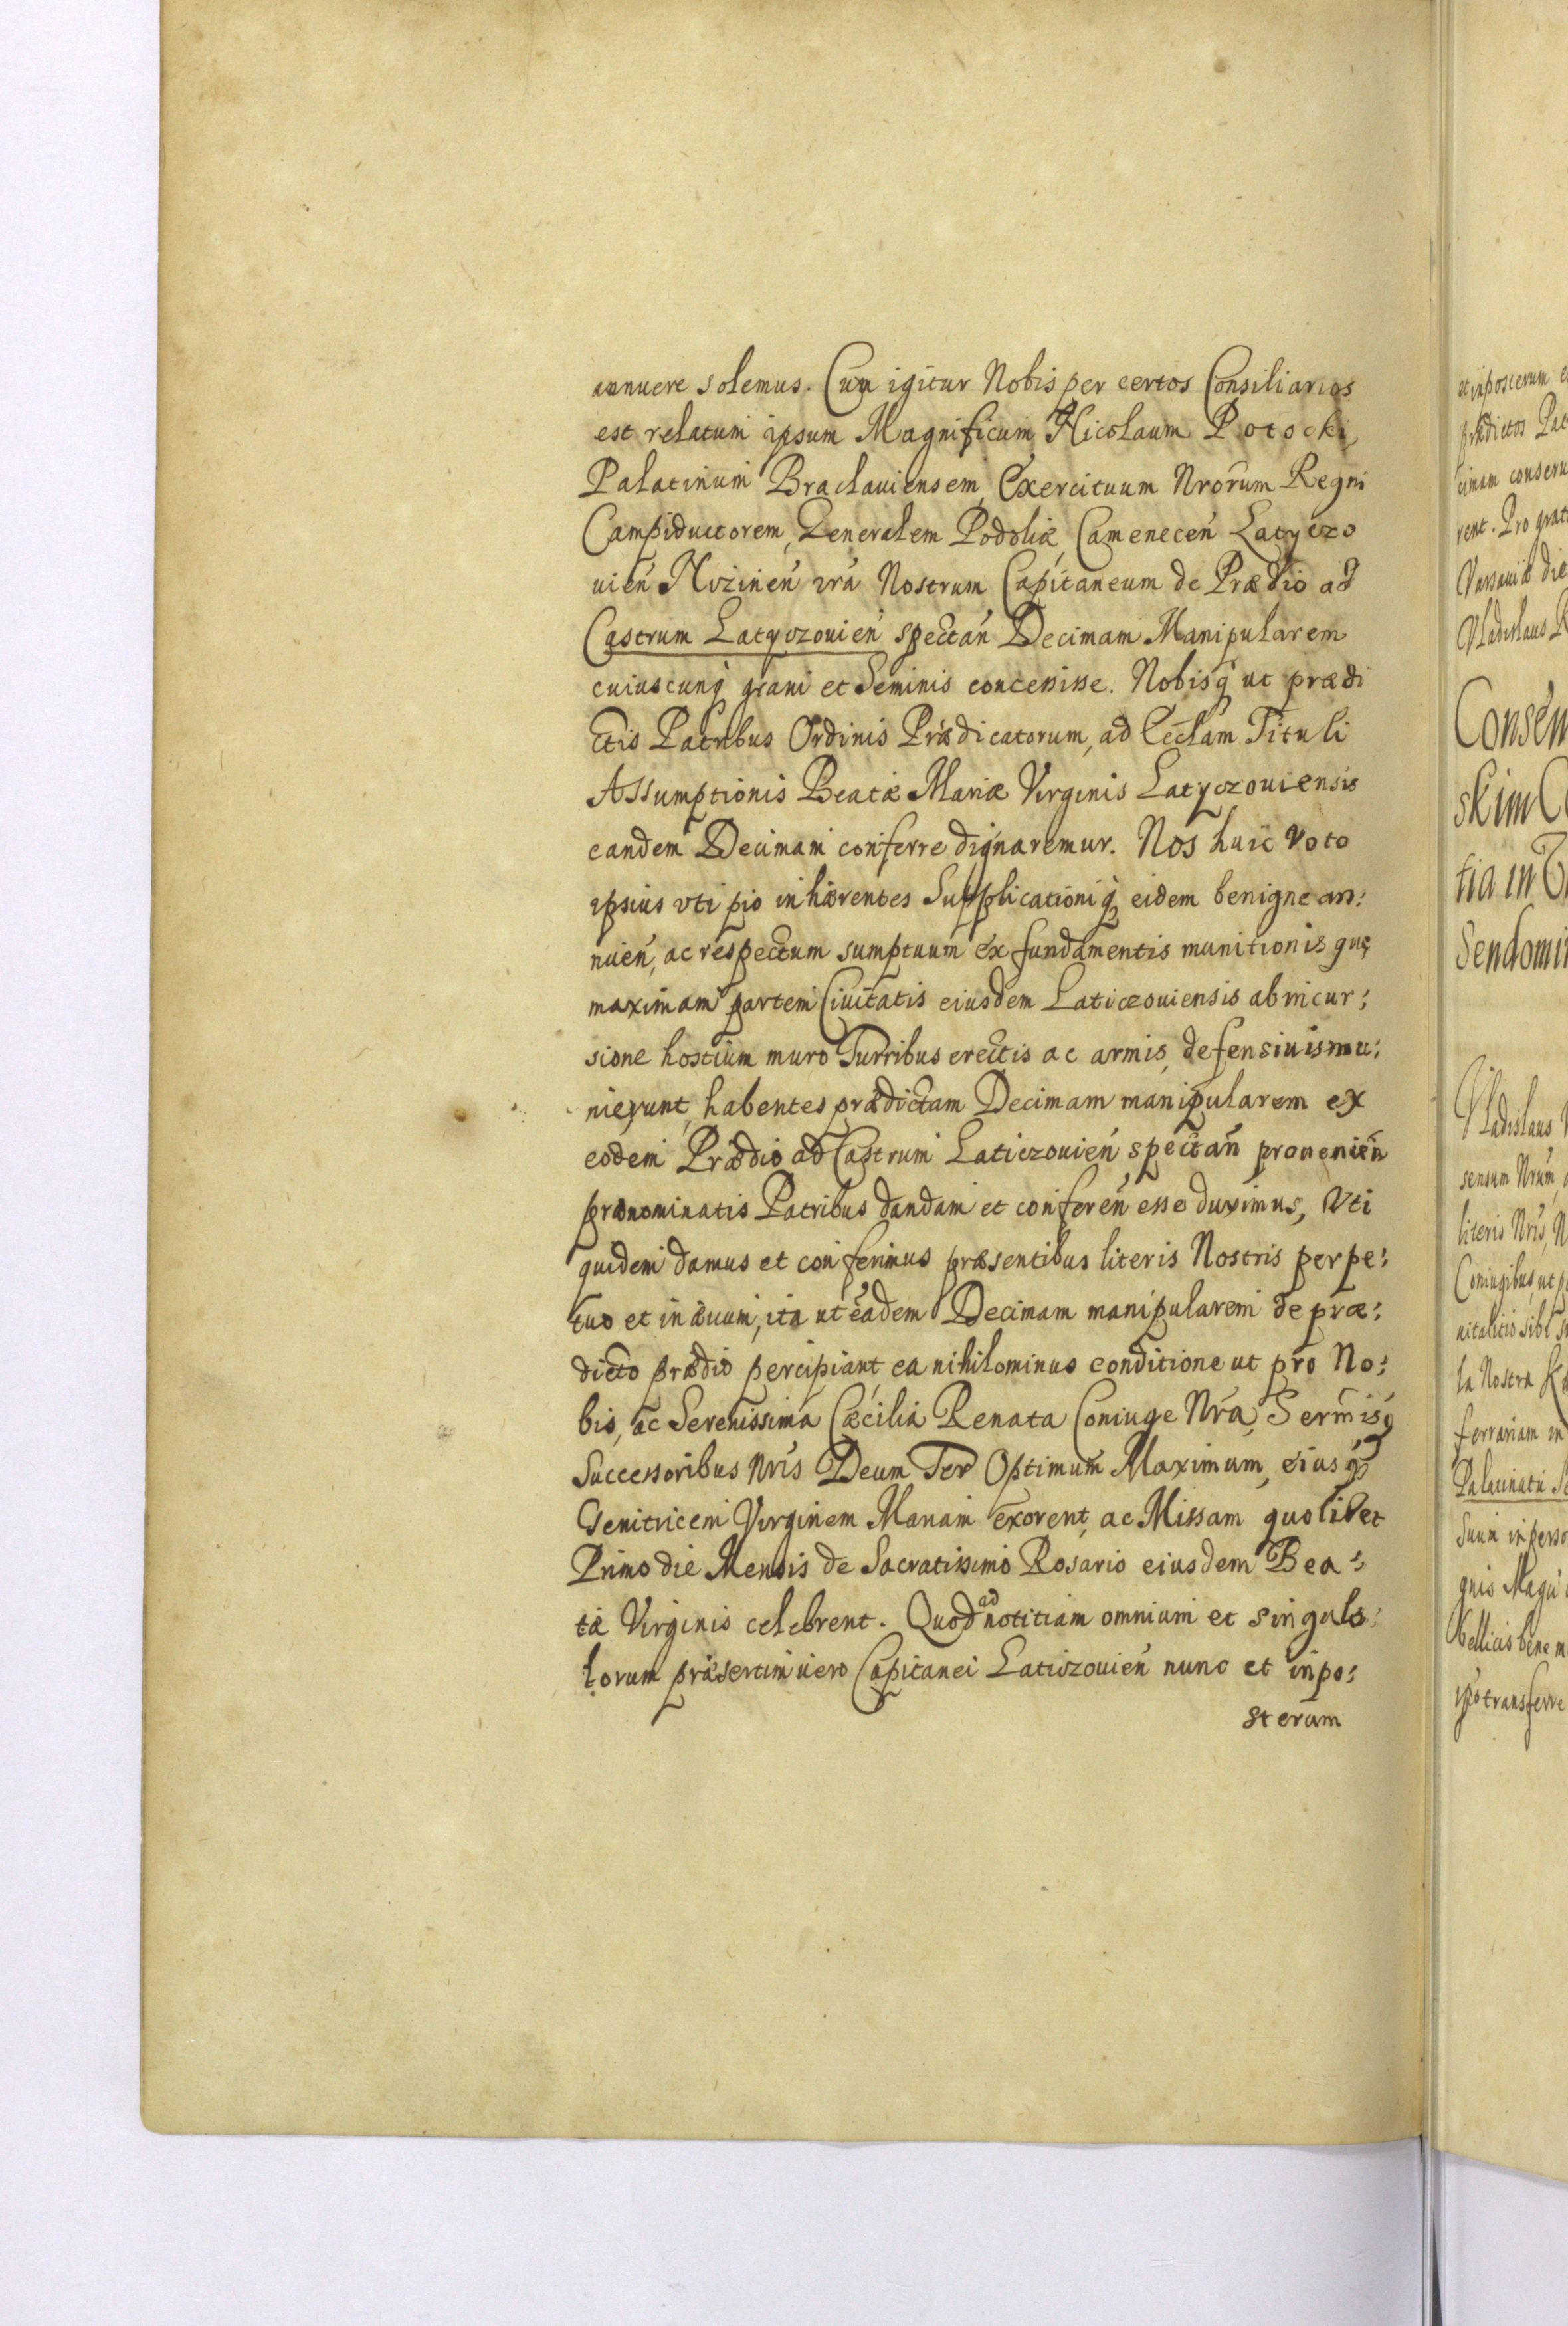 annuere solemus. Cum igitur Nobis per certos Consiliarios
est relatum ipsum Magnificum Nicolaum Potocki,
Palatinum Braclauiensem, Exercituum Nrorum Regni
Campiductorem, Generalem Podoliæ, Camenecen̄ Latyczo
uien̄ Nizinen̄ Nostrum Capitaneum de Prædio ad
Castrum Latyczouien̄ spectan̄ Decimam Manipularem
cuiuscunq̢ grani et Seminis concessisse. Nobisq̢ ut prædi
ctis Patribus Ordinis Prædicatorum, ad Eccłam Tituli
Assumptionis Beatæ Mariæ Virginis Latyczouiensis
eandem Decimam conferre dignaremur. Nos huic Voto
ipsius vti pio inhærentes Supplicationiq̢ eidem benigne an:
nuen̄, ac respectum sumptuum ex fundamentis munitionis quę
maximam partem Ciuitatis eiusdem Laticzouiensis ab incur:
sione hostium muro Turribus erectis ac armis, defensiuis mu:
nierunt, habentes prædictam Decimam manipularem ex
eodem Prædio ad Castrum Laticzouien̄ spectan̄ prouenien̄
prænominatis Patribus dandam et conferen̄ esse duximus, Vti
quidem damus et conferimus præsentibus literis Nostris perpe:
tuo et in æuum, ita ut eadem Decimam manipularem de præ:
dicto prædio percipiant ea nihilominus conditione ut pro No:
bis, ac Serenissima Cæcilia Renata Coniuge Nrā, Sermisq̢
Successoribus Nris Deum Ter Optimum Maximum, eiusq̢
Genitricem Virginem Mariam exorent, ac Missam quolibet
Primo die Mensis de Sacratissimo Rosario eiusdem Bea:
tæ Virginis celebrent. Quod ad notitiam omnium et singulo:
lorum præsertim vero Capitanei Laticzouien̄ nunc et inpo:
sterum
et inposterum
prædictos
rent. Pro
Varsauiæ die
Vladislaus
skim
tia in
Vladislaus
sensum Nrum
literis Nris,
Coniugibus, ut
sibi
la Nostra
ferrariam in
Palatinatu
Suum in
gnis
bellicis bene
transferre